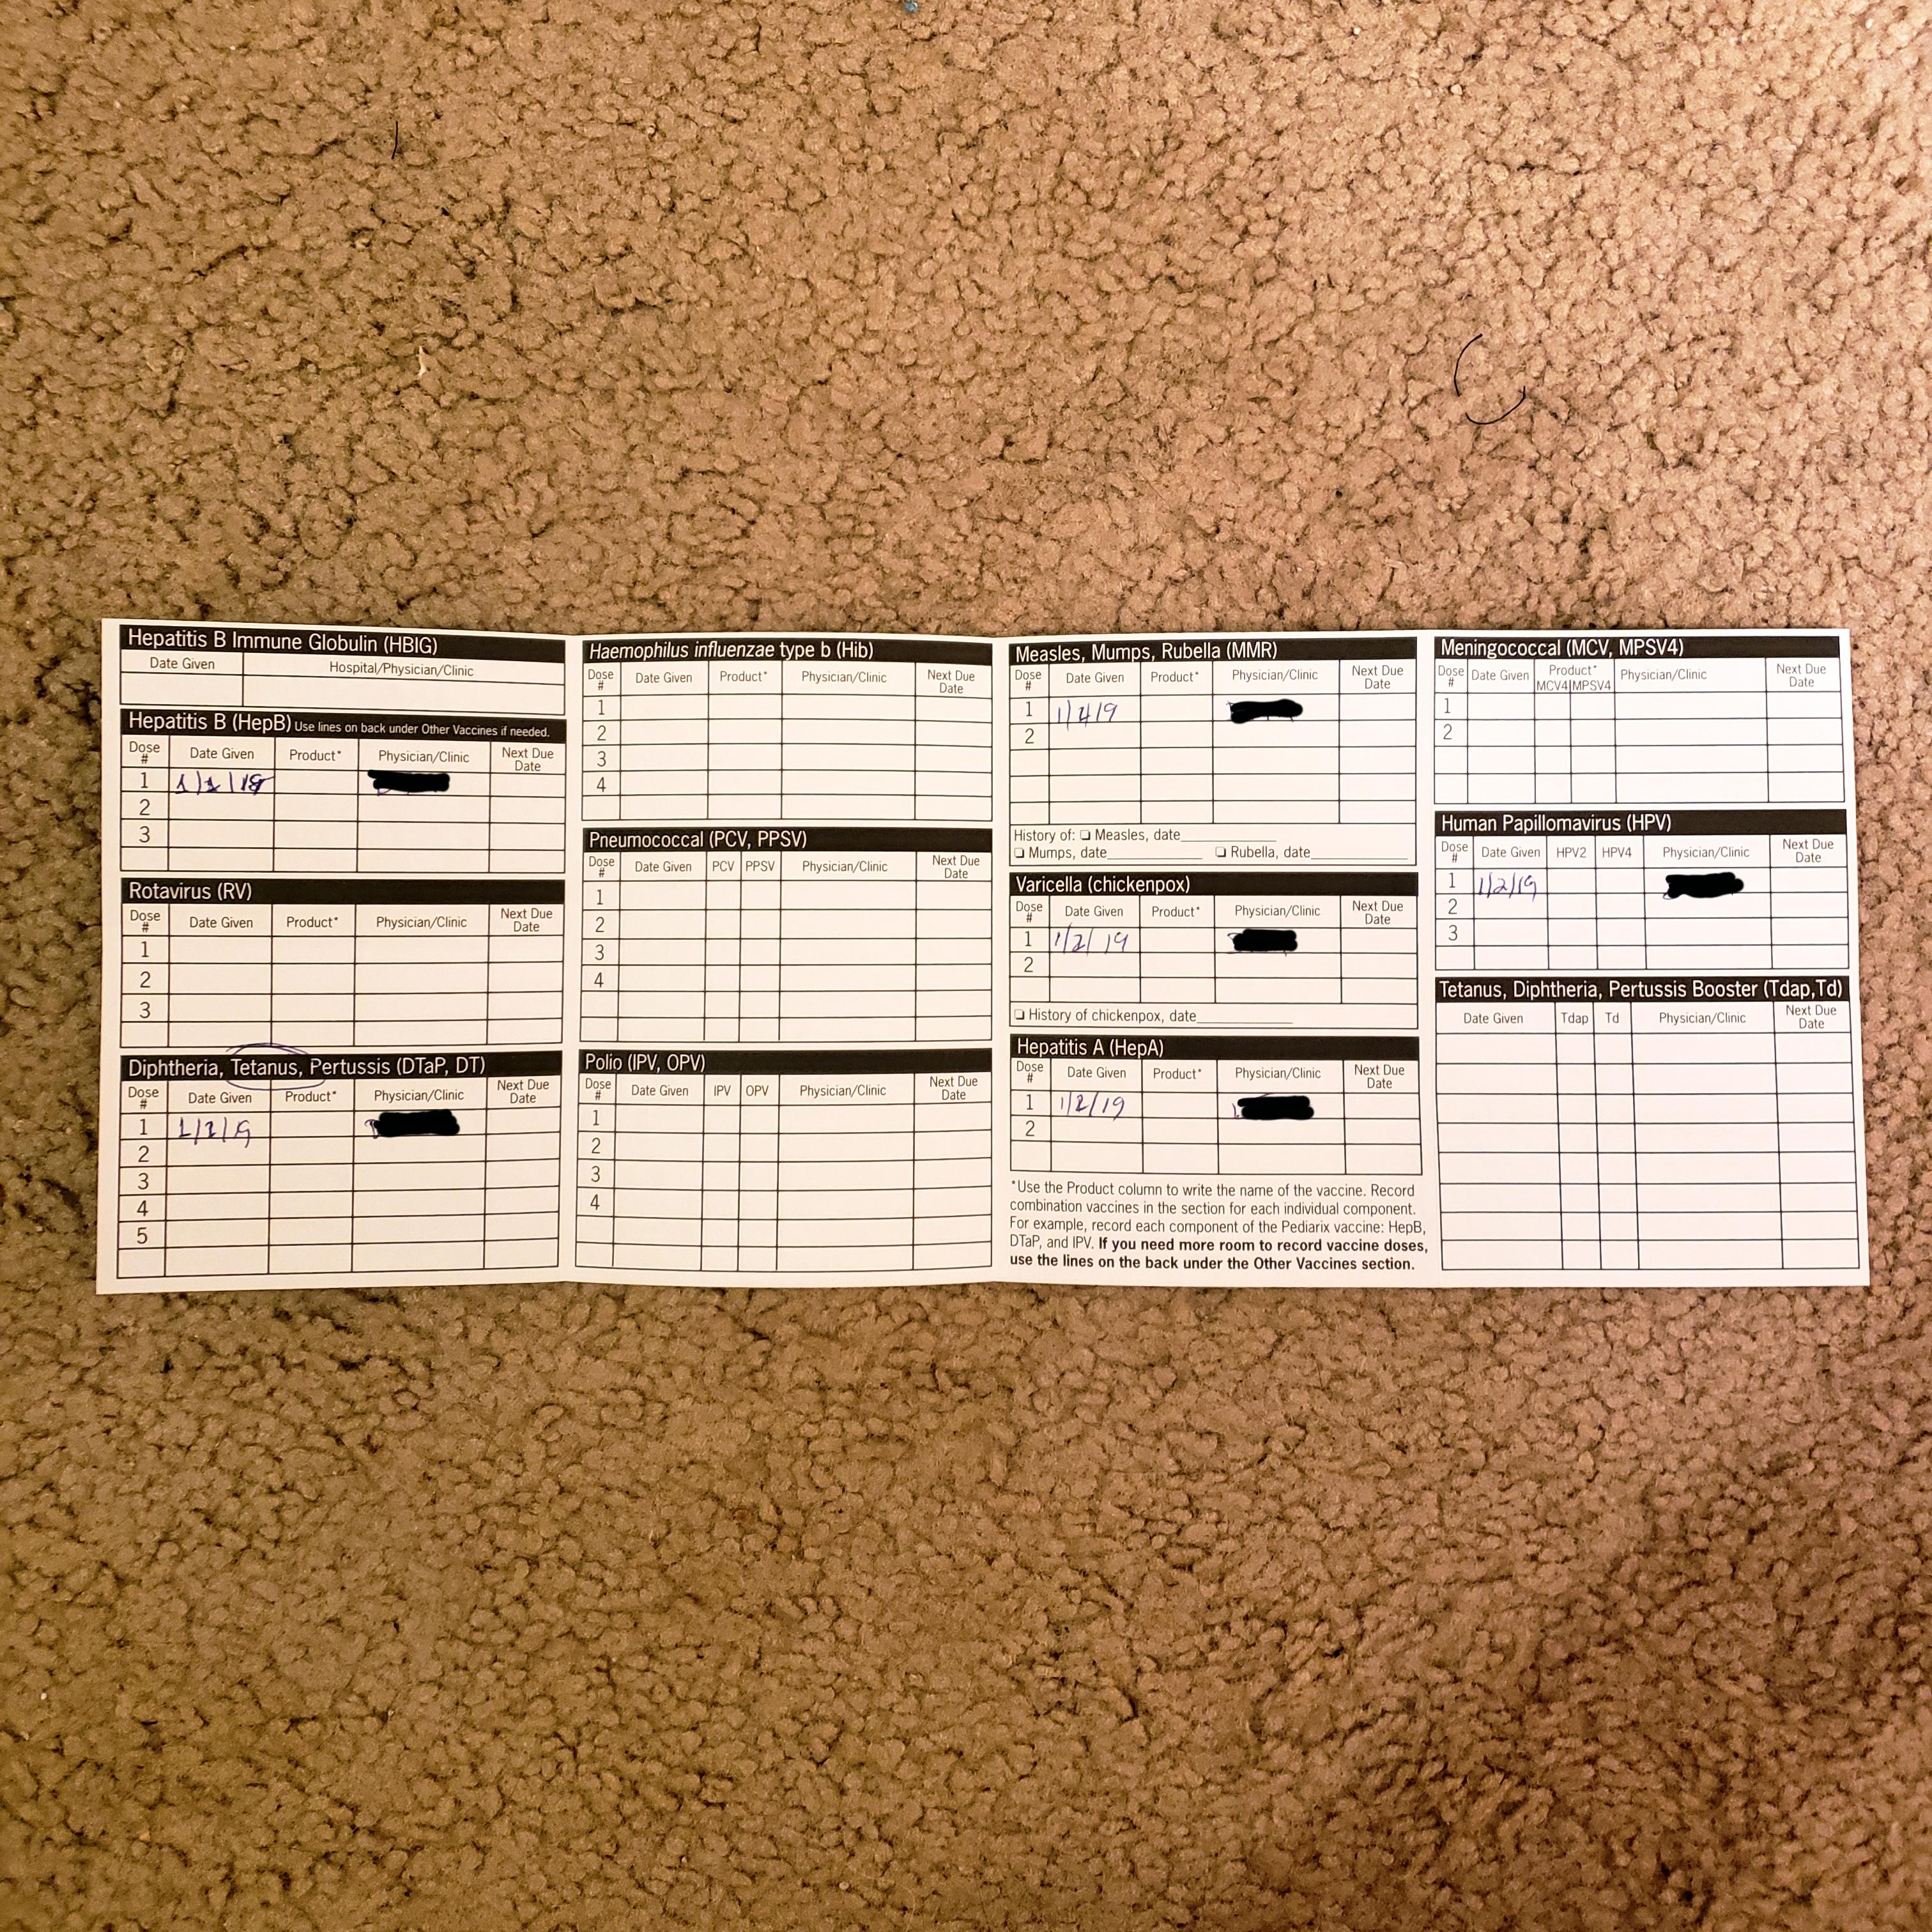 Hepatitis B Immune Globulin (HBIG)
Date Given Hospital/Physician/Clinic
Hepatitis B (HepB) Use lines on back under Other Vaccines if needed.
Dose # Date Given Product* Physician/Clinic Next Due Date
1
2
3
Rotavirus (RV)
Dose # Date Given Product* Physician/Clinic Next Due Date
1
2
3
Diphtheria, Tetanus, Pertussis (DTaP, DT)
Dose # Date Given Product* Physician/Clinic Next Due Date
1
2
3
4
5
Haemophilus influenzae type b (Hib)
Dose # Date Given Product* Physician/Clinic Next Due Date
1
2
3
4
Pneumococcal (PCV, PPSV)
Dose # Date Given PCV PPSV Physician/Clinic Next Due Date
1
2
3
4
Polio (IPV, OPV)
Dose # Date Given IPV OPV Physician/Clinic Next Due Date
1
2
3
4
Measles, Mumps, Rubella (MMR)
Dose # Date Given Product* Physician/Clinic Next Due Date
1
2
History of: ❏ Measles, date
❏ Mumps, date ❏ Rubella, date
Varicella (chickenpox)
Dose # Date Given Product* Physician/Clinic Next Due Date
1 1/2/19
2
❏ History of chickenpox, date
Hepatitis A (HepA)
Dose # Date Given Product* Physician/Clinic Next Due Date
1 1/2/19
2
*Use the Product column to write the name of the vaccine. Record
combination vaccines in the section for each individual component.
For example, record each component of the Pediarix vaccine: HepB,
DTaP, and IPV. If you need more room to record vaccine doses,
use the lines on the back under the Other Vaccines section.
Meningococcal (MCV, MPSV4)
Dose # Date Given Product* MCV4 MPSV4 Physician/Clinic Next Due Date
1
2
Human Papillomavirus (HPV)
Dose # Date Given HPV2 HPV4 Physician/Clinic Next Due Date
1 1/2/19
2
3
Tetanus, Diphtheria, Pertussis Booster (Tdap,Td)
Date Given Tdap Td Physician/Clinic Next Due Date